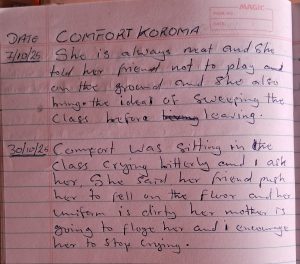 MAGIC
DATE
DATE COMFORT KOROMA
7/10/25 She is always neat and she
told her friend not to play and
on the ground and she also
brings the idea of sweeping the
class before leaving.
30/10/25 Comfort was sitting in the
class crying bitterly and i ask
her, She said her friend push
her to fell on the floor and her
uniform is dirty her mother is
going to floge her and i encourage
her to stop crying.